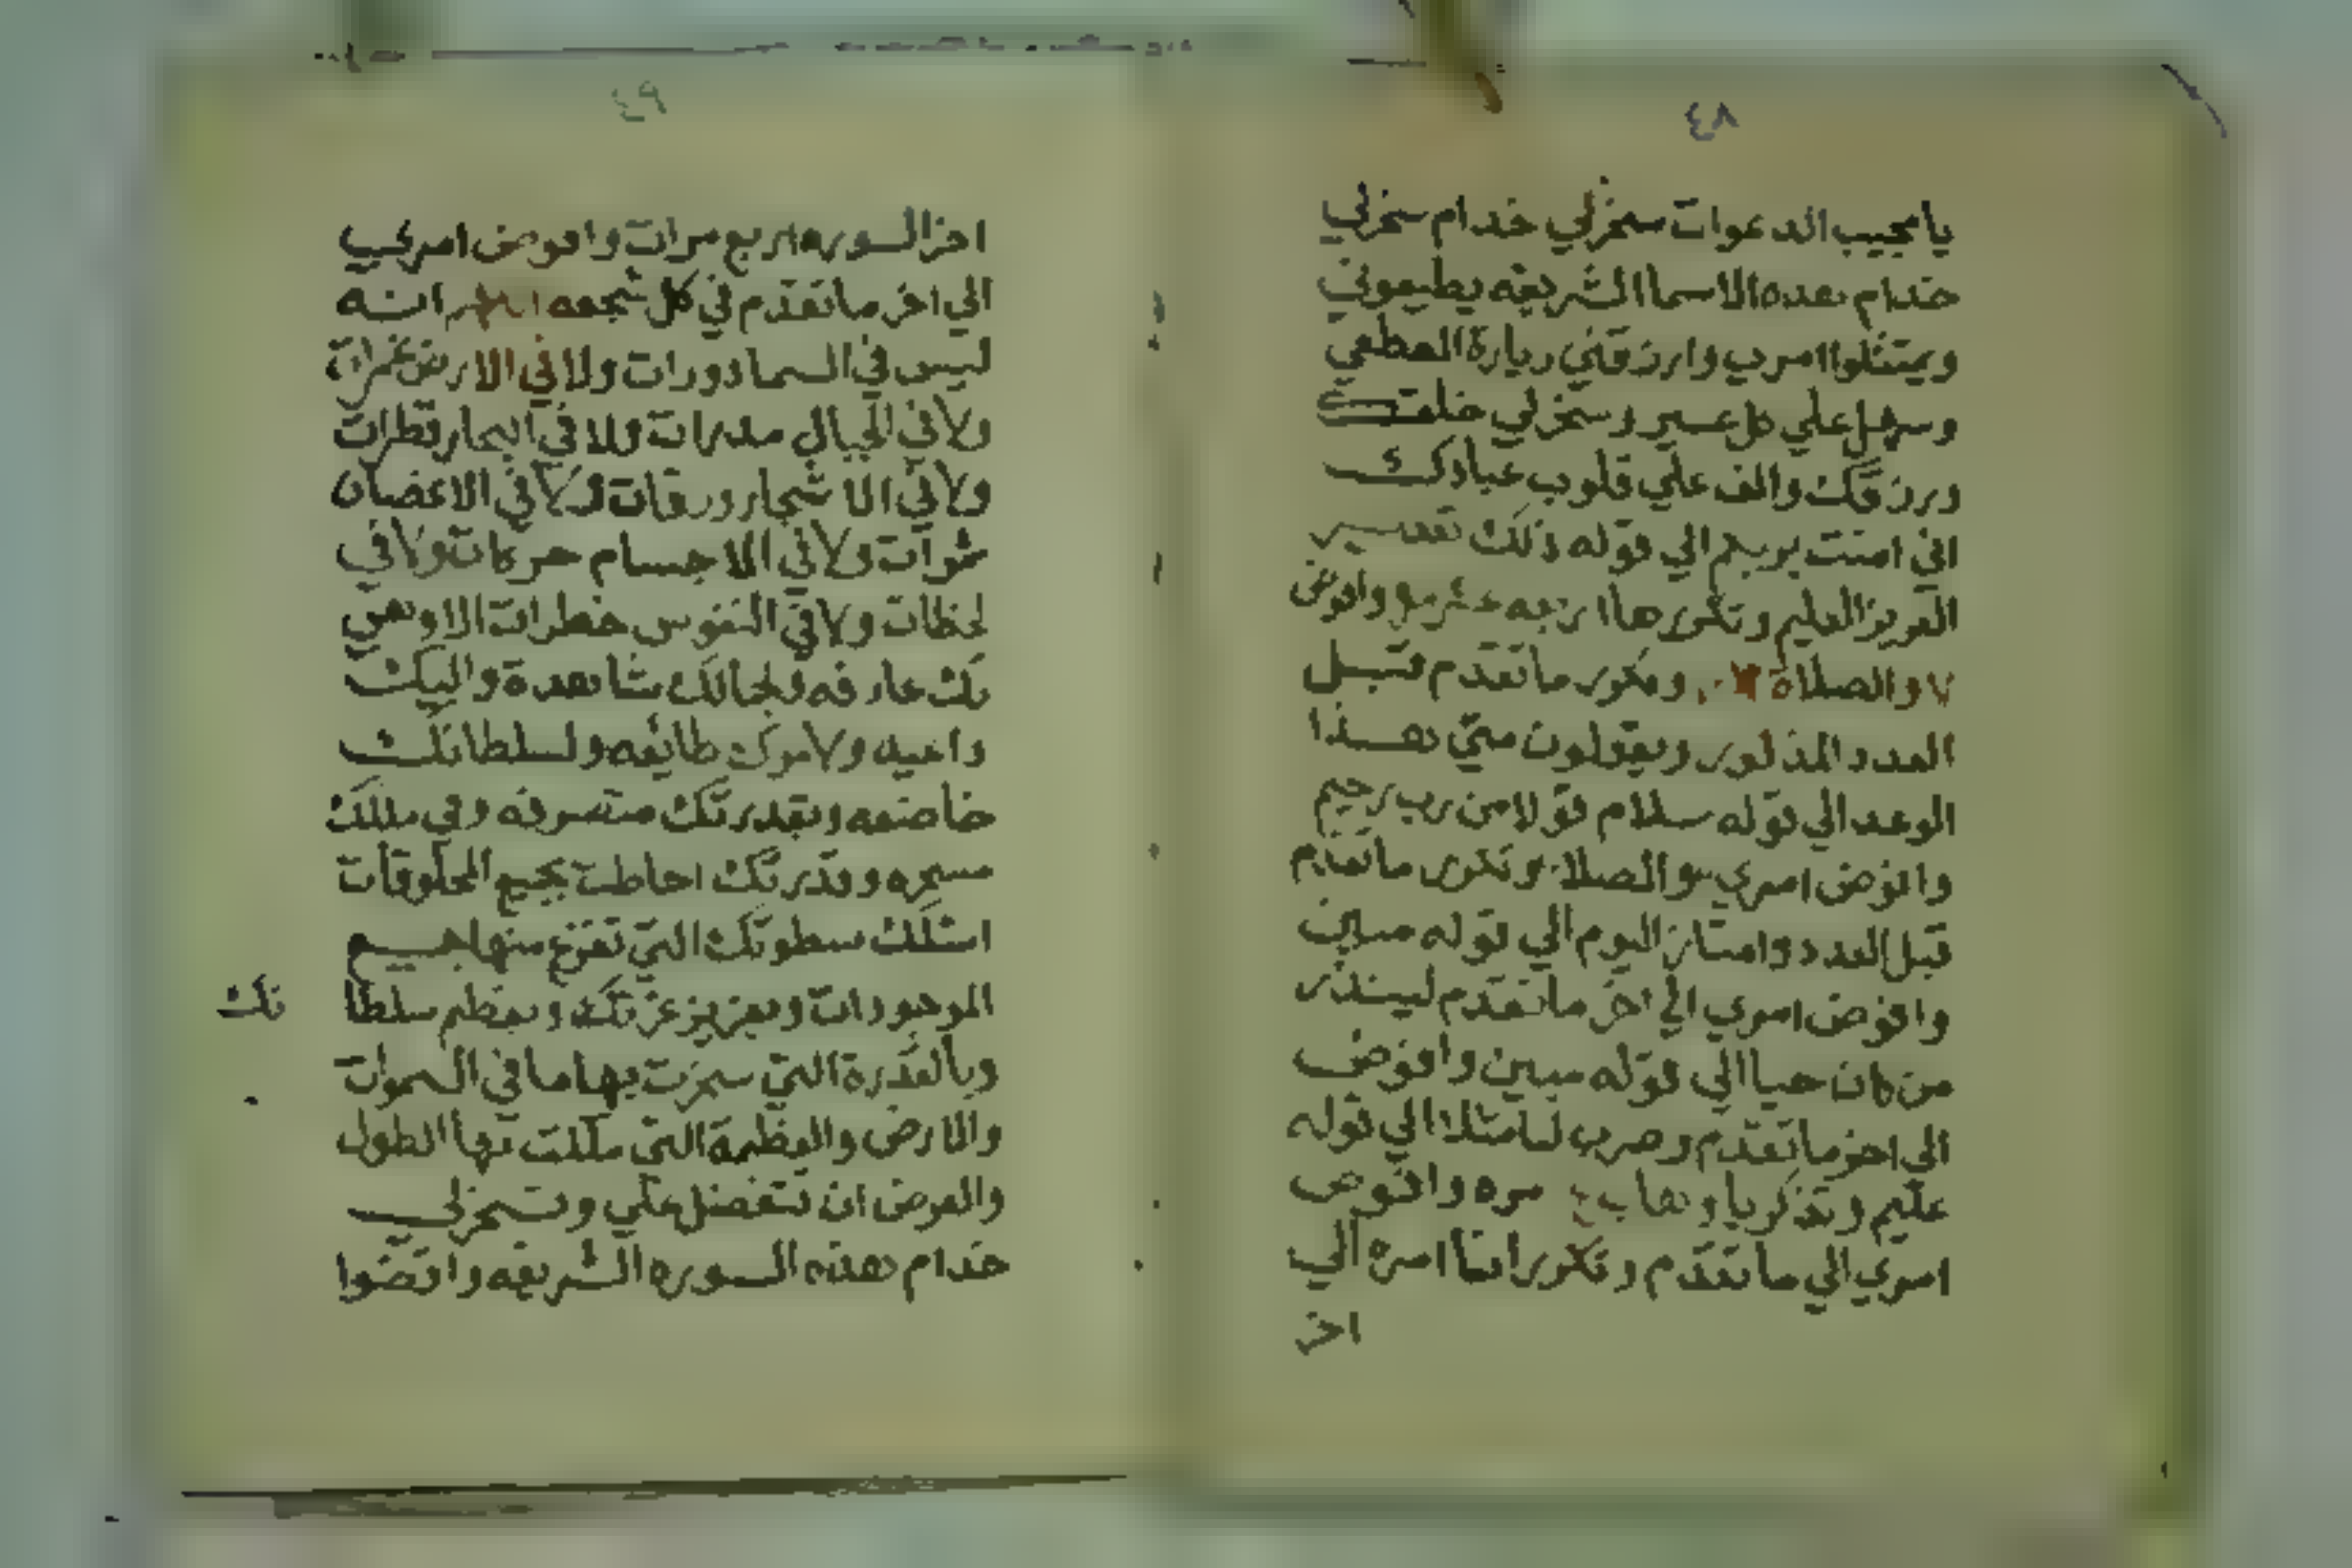 ٤٨
يا مجيب الدعوات سخرلي خدام سخرلي
خدام هذه الاسما الشريفه يطيعوني
ويمتثلوا امري وارزقني زيارة المصطفي
وسهل علي كل عسير وسخرلي خلقك
ورزقك والف علي قلوب عبادك
اني امنت بربكم الي قوله ذلك تقدير
العزيز العليم وتكررها اربعه عشر مره وافوض
٧ والصلاة وتكرر ما تقدم قبل
العدد المذكور ويقولون متي هذا
الوعد الي قوله سلام قولا من رب رحيم
وافوض امري والصلا وتكرر ما تقدم
قبل العدد وامتاز اليوم الي قوله مبين
وافوض امري الي اخر ما تقدم لينذر
من كان حيا الي قوله مبين وافوض
الي اخر ما تقدم وضرب لنا مثلا الي قوله
عليم وتذكر يا وهاب مره وافوض
امري الي ما تقدم وتكرر انما امره الي
اخر
٤٩
اخر السوره اربع مرات وافوض امري
الي اخر ما تقدم في كل جمعه اللهم انه
ليس في السما دورات ولا في الارض غمرات
ولا في الجبال مدرات ولا في البحار قطرات
ولا في الاشجار ورقات ولا في الاغصان
ثمرات ولا في الاجسام حركات ولا في
لحظات ولا في النفوس خطرات الا وهي
بك عارفه ولجالك شاهدة واليك
واغيه ولاموك طائعه ولسلطانك
خاضعه وبقدرتك متصرفه وفي ملكك
مسخره وقدرتك احاطت بجميع المخلوقات
اسئلك سطوتك التي تفزع منها جميع
الموجودات وبعزيز عزتك وبعظم سلطا
نك
وبالقدرة التي سخرت بها ما في السموات
والارض والعظمة التي ملئت بها الطول
والعرض ان تتفضل علي وتسخرلي
خدام هذه السوره الشريفه واقضوا